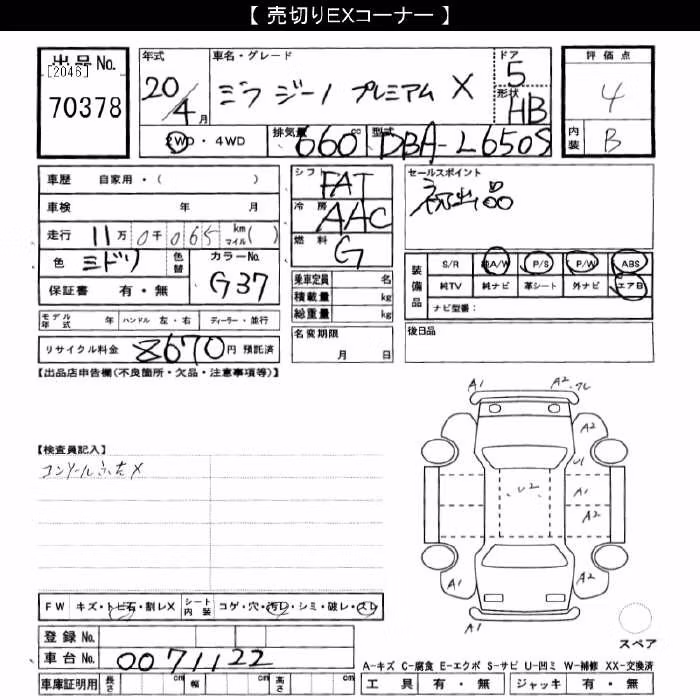 【 売切りEXコーナー 】
出品No.
[2046]
70378
年式
20/4月
車名・グレード
ミラ ジーノ プレミアム X
ドア
5
形状
HB
評価点
4
内装
B
2WD・4WD
排気量
660cc
型式
DBA-L650S
車歴 自家用・( )
車検 年 月
走行 11万0千065 km マイル( )
色 ミドリ 色替
カラーNo.
G37
保証書 有・無
シフト
FAT
冷房
AAC
燃料
G
セールスポイント
初出品
装備品
S/R 純A/W P/S P/W ABS
純TV 純ナビ 革シート 外ナビ エアB
ナビ型番:
乗車定員 名
積載量 kg
総重量 kg
モデル年式 年 ハンドル 左・右 ディーラー・並行
リサイクル料金 8670円 預託済
名変期限
月 日
後日品
【出品店申告欄(不良箇所・欠品・注意事項等)】
A1
A2
A2
U1
U2
A1
A2
A1
A2
A1
【検査員記入】
コンソールふたX
FW キズ・トビ石・割レX
シート内装 コゲ・穴・汚レ・シミ・破レ・スレ
登録No.
車台No. 0071122
スペア
A-キズ C-腐食 E-エクボ S-サビ U-凹ミ W-補修 XX-交換済
車庫証明用 長さ cm 幅 cm 高さ cm
工具 有・無 ジャッキ 有・無